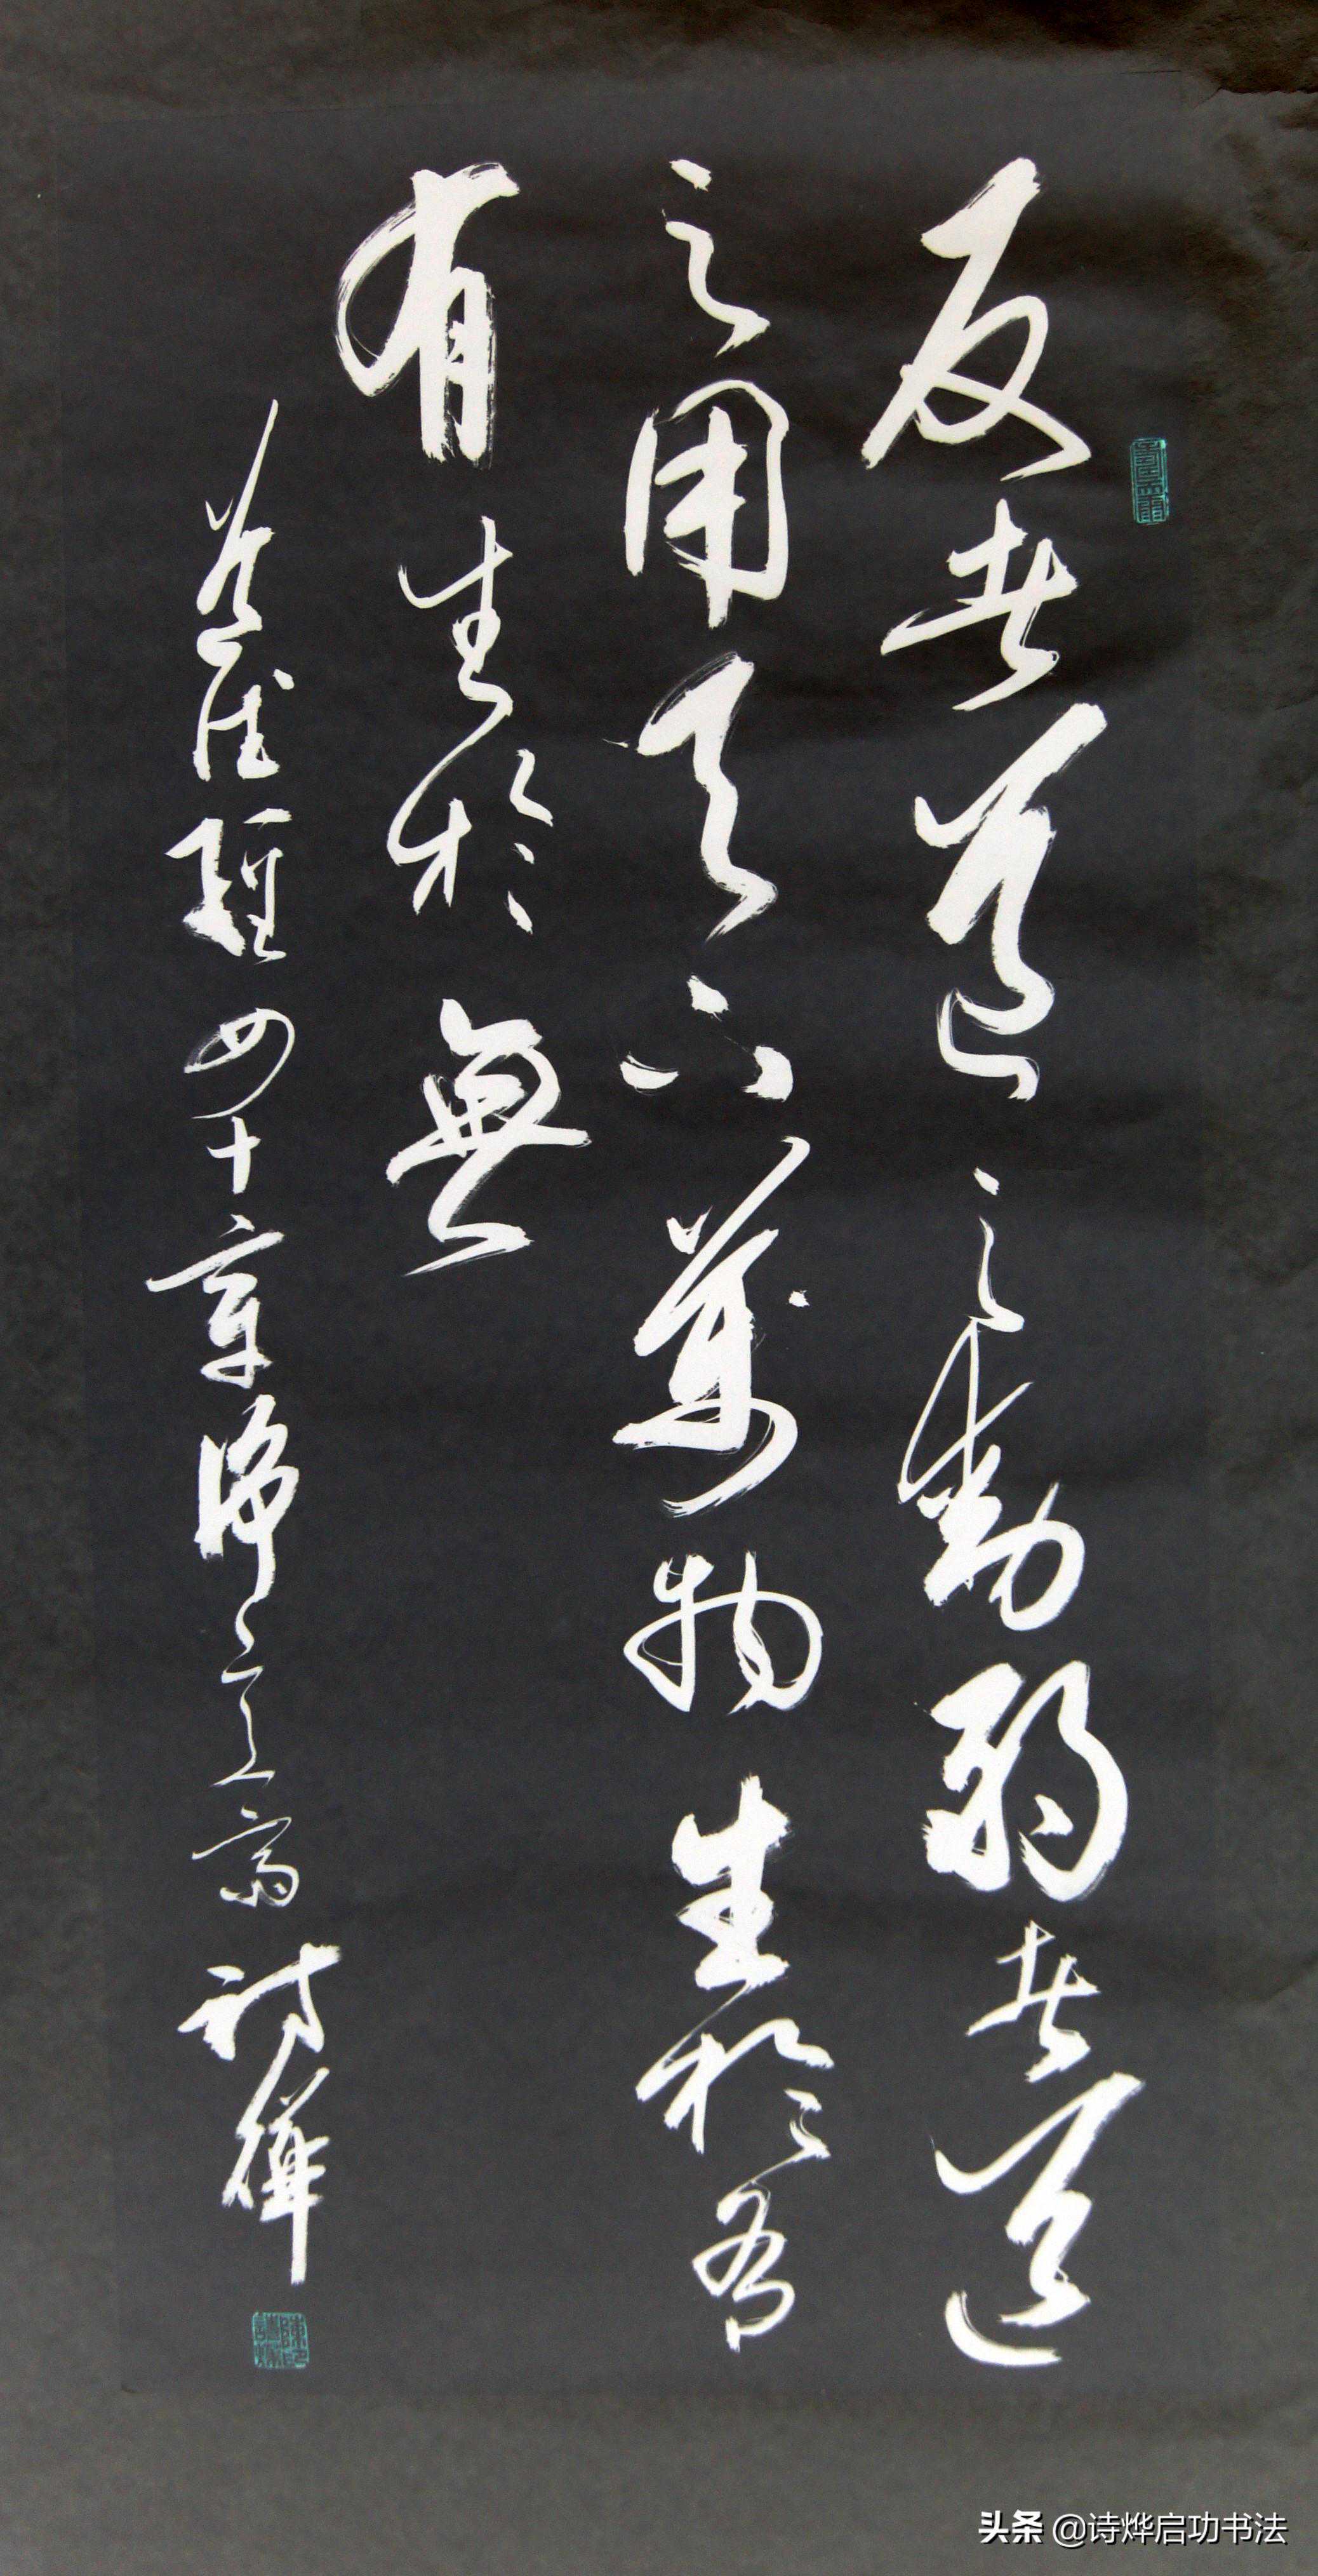 反者道之動弱者道
之用天下萬物生於有
有生於無
道德經四十章淨立齋詩燁
头条 @诗烨启功书法